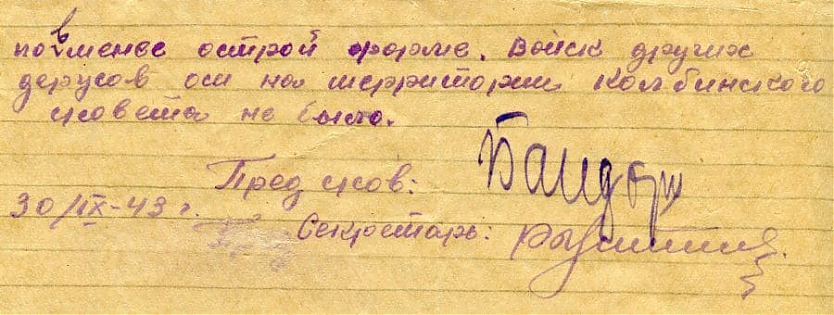 но в менее острой форме. Войск других
держав оси на территории Колбинского
совета не было.
Пред сков:
30/IX-43 г.
Секретарь: